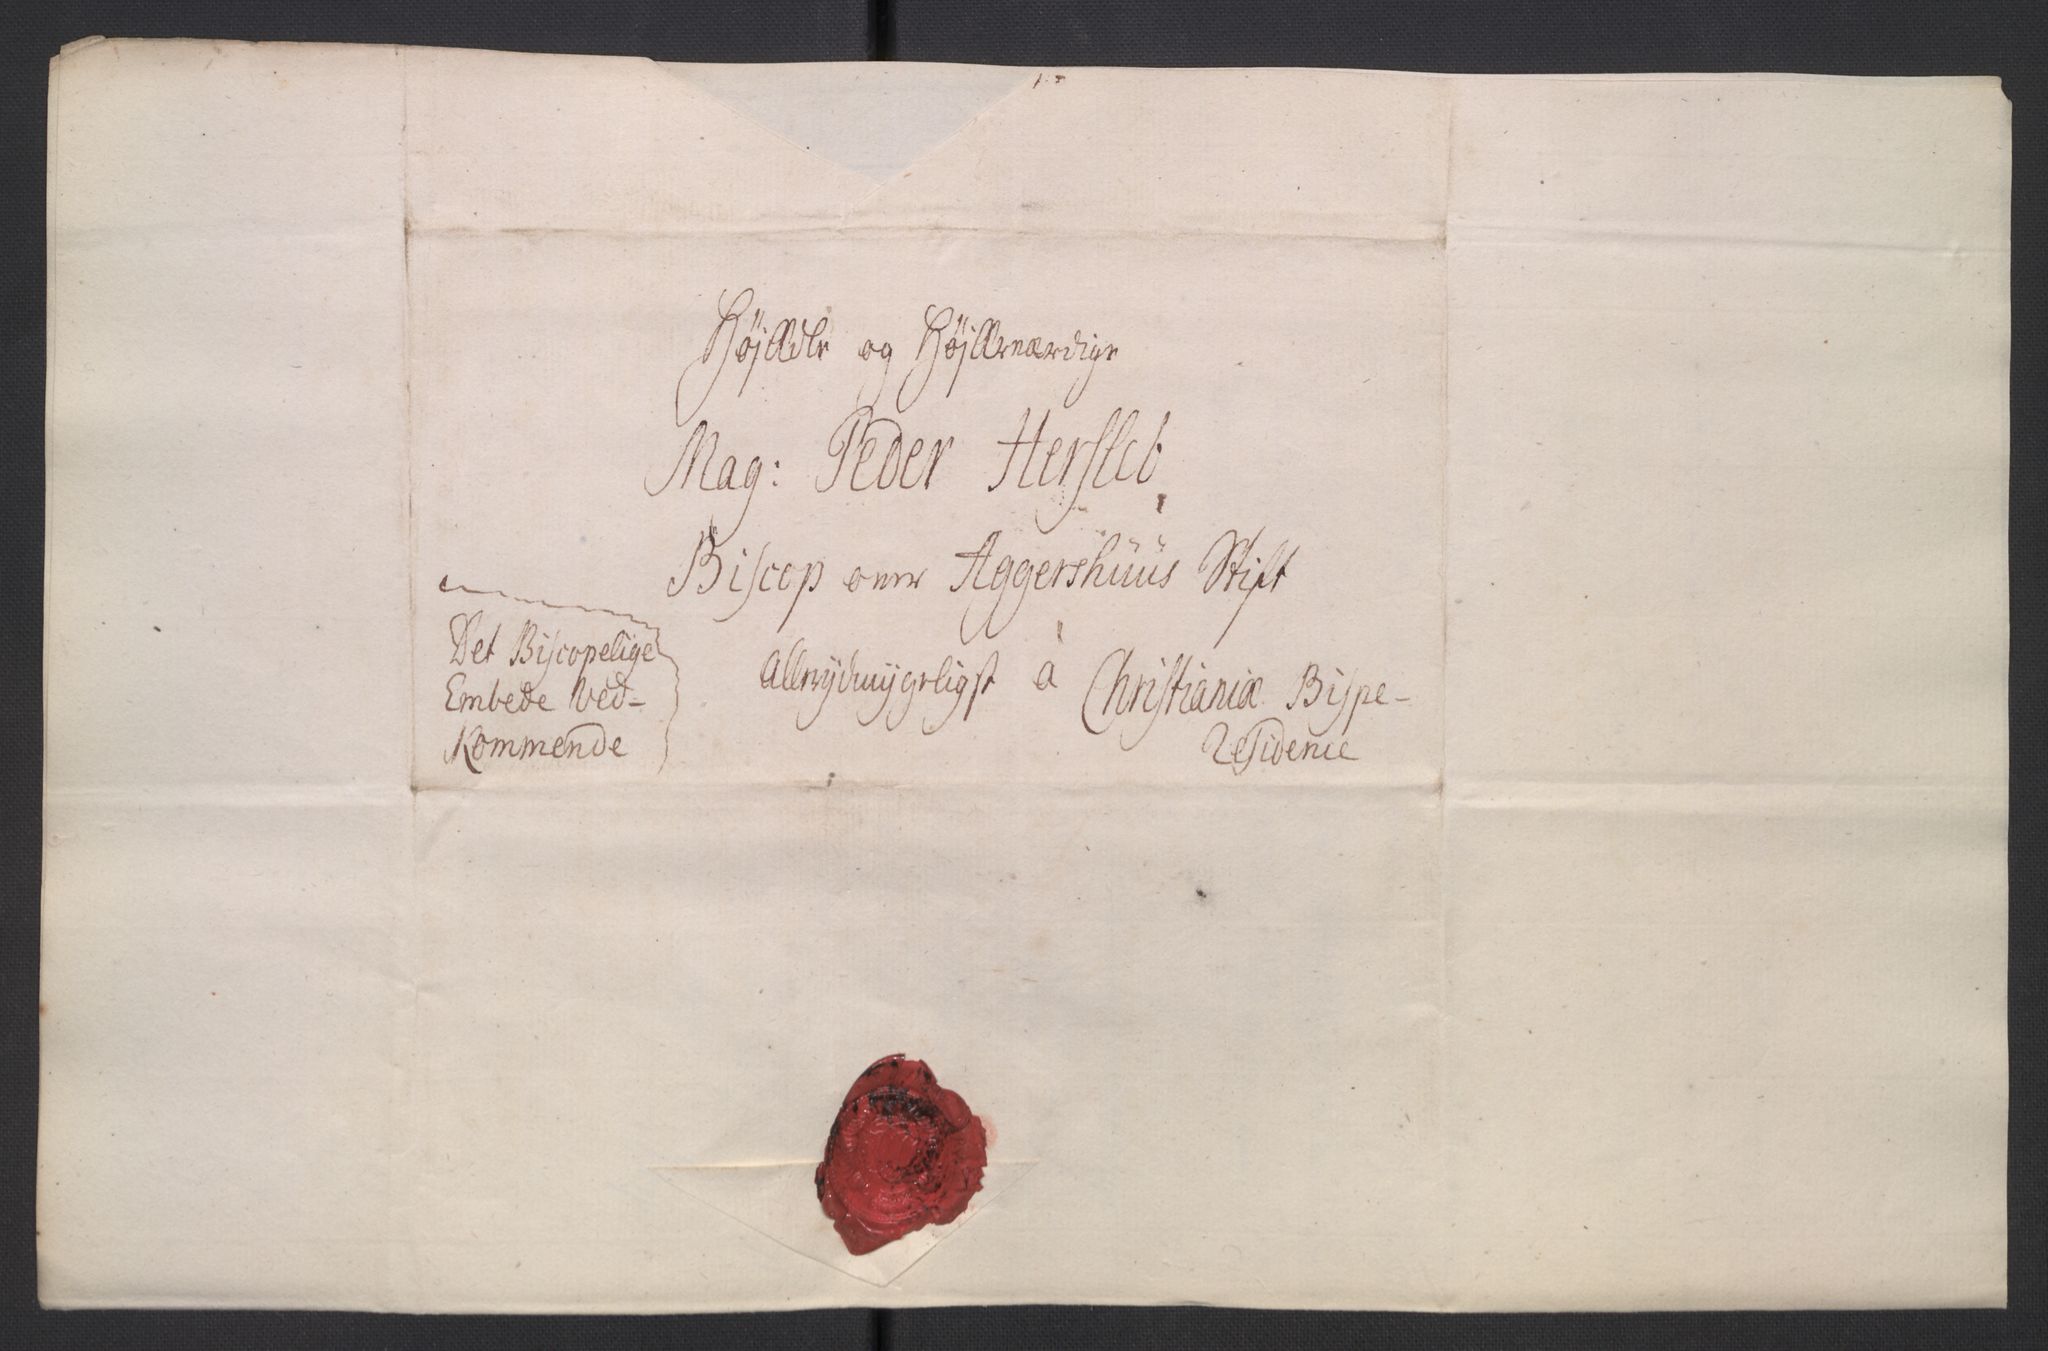 HøjÆdle og HøjÆrværdige
Mag: Peder Hersleb
Biscop over Aggershüüs Stift
Allerydmygeligst â Christianiæ Bispe-
Residence
Det Biscopelige
Embede Ved-
kommende